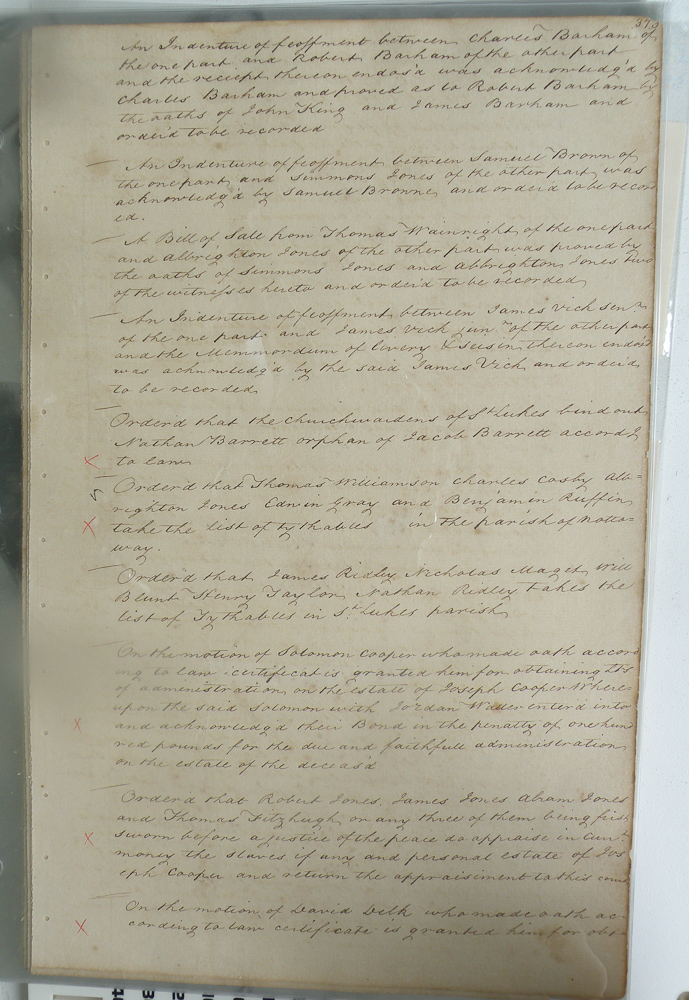 An Indenture of feoffment between Charles Barham of
the one part and Robert Barham of the other part
and the receipt thereon endos'd was acknowledg'd by
Charles Barham and proved as to Robert Barham by
the oaths of John King and James Barham and
order'd to be recorded
An Indenture of feoffment between Samuel Brown of
the one part and Simmons Jones of the other part was
acknowledg'd by Samuel Browne and order'd to be record
ed.
A Bill of Sale from Thomas Wainright of the one part
and Albrighton Jones of the other part was proved by
the oaths of Simmons Jones and Abbrighton Jones two
of the witnesses hereto and order'd to be recorded
An Indenture of feoffment between James Vich senr.
of the one part and James Vich junr. of the other part
and the Memmordum of livery & seisin thereon indors'd
was acknowledg'd by the said James Vich and order'd
to be recorded
Orderd that the churchwardens of St Lukes bind out
Nathan Barrett orphan of Jacob Barrett accordg
to law
Orderd that Thomas Williamson Charles Cosby Alb=
righton Jones Edwin Gray and Benjamin Ruffin
take the list of tythables in the parish of Notto=
way.
Order'd that James Ridley Nicholas Maget Will
Blunt Henry Taylor Nathan Ridley takes the
list of Tythables in St. Lukes parish
On the motion of Solomon Cooper who made oath accord
ing to law certificat is granted him for obtaining
of administration on the estate of Joseph Cooper Where
upon the said Solomon with Jordan Waller enterd into
and acknowledg'd their Bond in the penalty of one hun
red pounds for the due and faithfull administration
on the estate of the deceas'd
Orderd that Robert Jones, James Jones Abram Jones
and Thomas Fitzhugh or any three of them being first
sworn before a justice of the peace do appraise in Curr.t
money the slaves if any and personal estate of Jos
eph Cooper and return the appraisiment to this court
On the motion of David Delk who made oath ac-
cording to law certificate is granted him for obt-